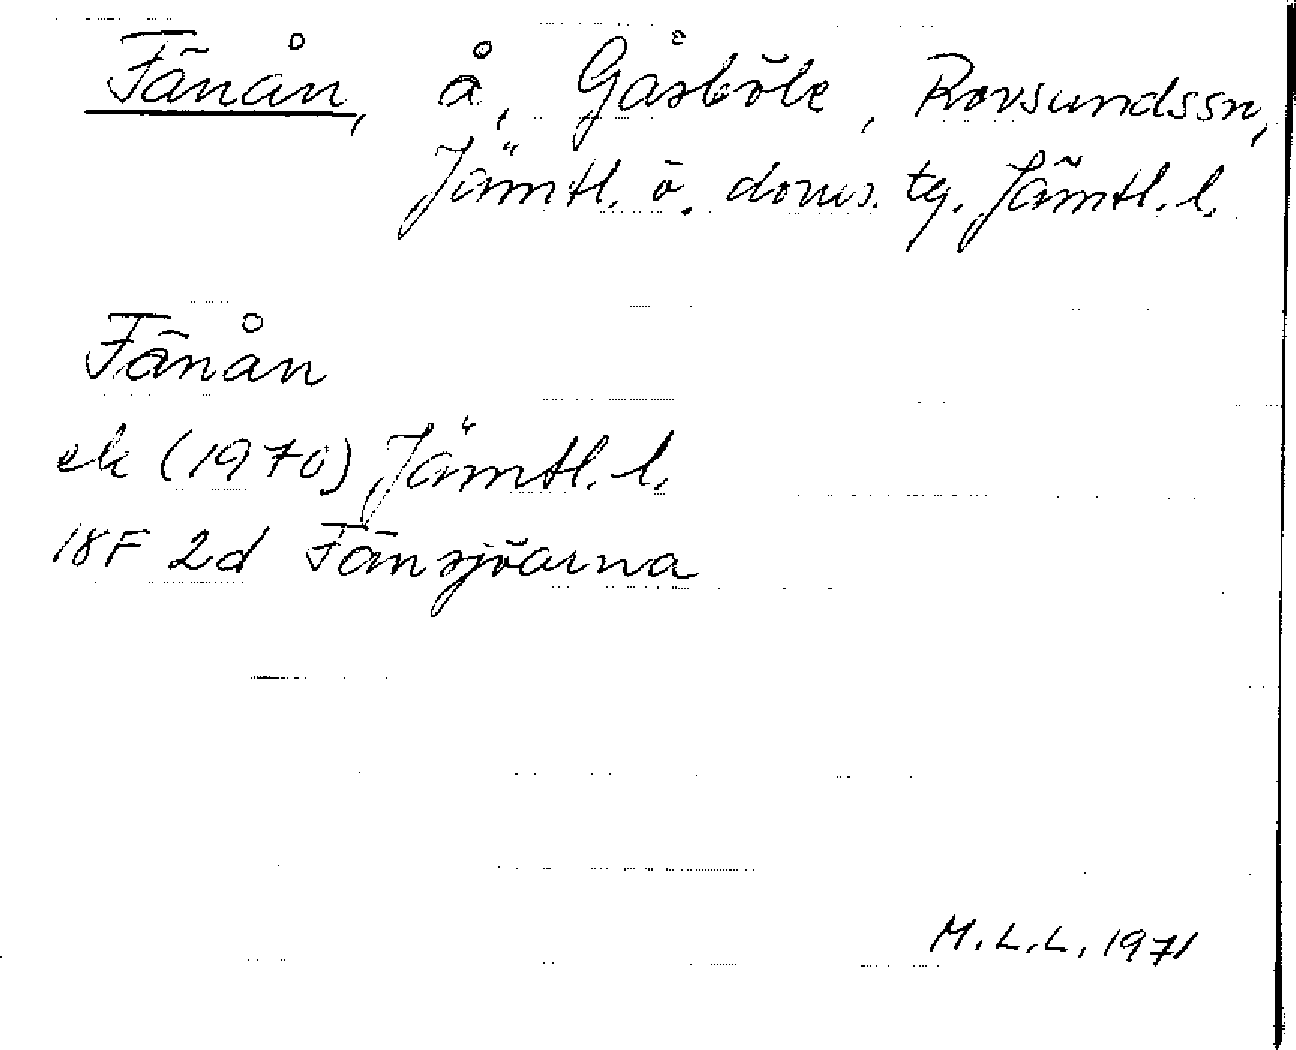 Fänån, å, Gåsböle, Rovsundssn,
Jämtl. ö. doms. tg. Jämtl. l.
Fänån
ek (1970) Jämtl. l.
18F 2d Fänsjöarna
M.L.L. 1971